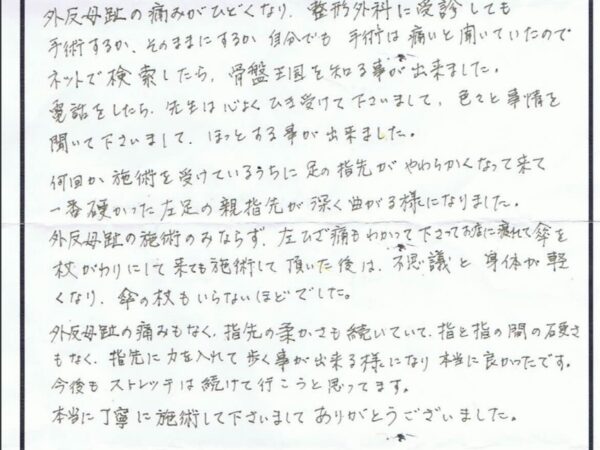 外反母趾の痛みがひどくなり、整形外科に受診しても
手術するか、そのままにするか自分でも手術は痛いと聞いていたので
ネットで検索したら、骨盤王国を知る事が出来ました。
電話をしたら、先生は心よくひき受けて下さいまして、色々と事情を
聞いて下さいまして、ほっとする事が出来ました。
何回か施術を受けているうちに足の指先がやわらかくなって来て
一番硬かった左足の親指先が深く曲がる様になりました。
外反母趾の施術のみならず、左ひざ痛もわかって下さってお店に疲れて傘を
杖がわりにして来ても施術して頂いた後は、不思議と身体が軽
くなり、傘の杖もいらないほどでした。
外反母趾の痛みもなく、指先の柔かさも続いていて、指と指の間の硬さ
もなく、指先に力を入れて歩く事が出来る様になり本当に良かったです。
今後もストレッチは続けて行こうと思ってます。
本当に丁寧に施術して下さいましてありがとうございました。